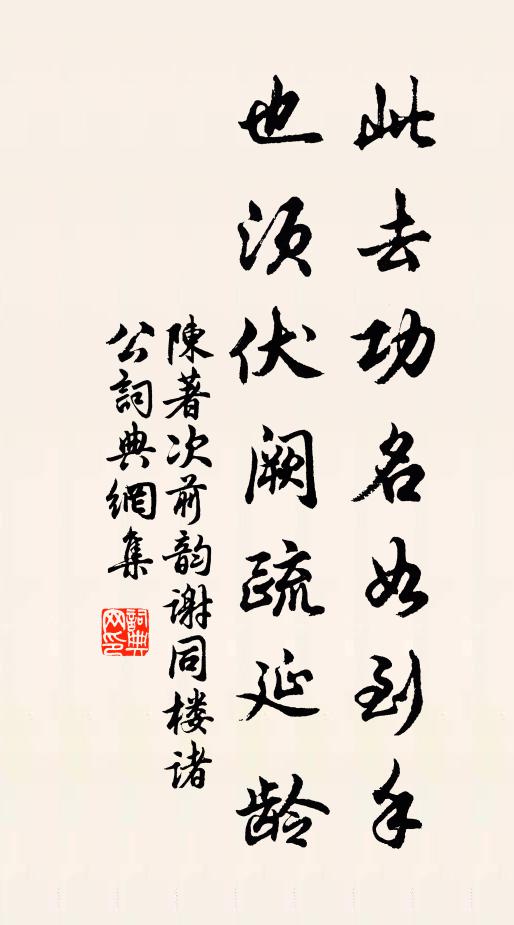 此去功名如到手
也须伏阙疏延龄
陳著次前韵謝同楼诸
公詞典網集
詞典網印